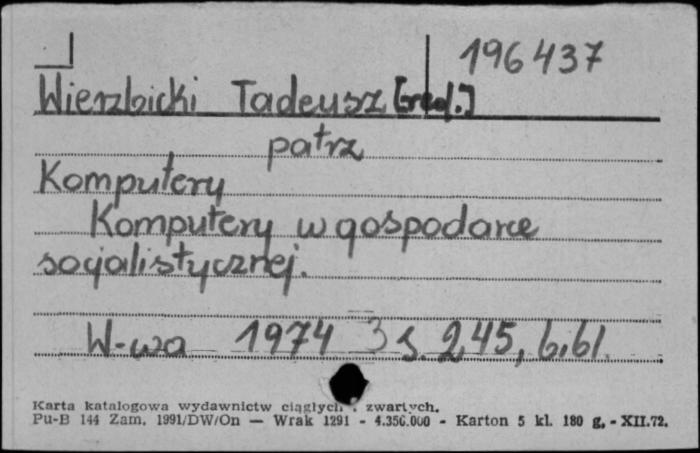 196437
Wierzbicki Tadeusz [red.]
patrz
Komputery
Komputery w gospodarce
socjalistycznej.
W-wa 1974 s. 245, b.bl.
Karta katalogowa wydawnictw ciągłych i zwartych.
Pu-B 144 Zam. 1991/DW/On — Wrak 1291 - 4.356.000 - Karton 5 kl. 180 g. - XII.72.